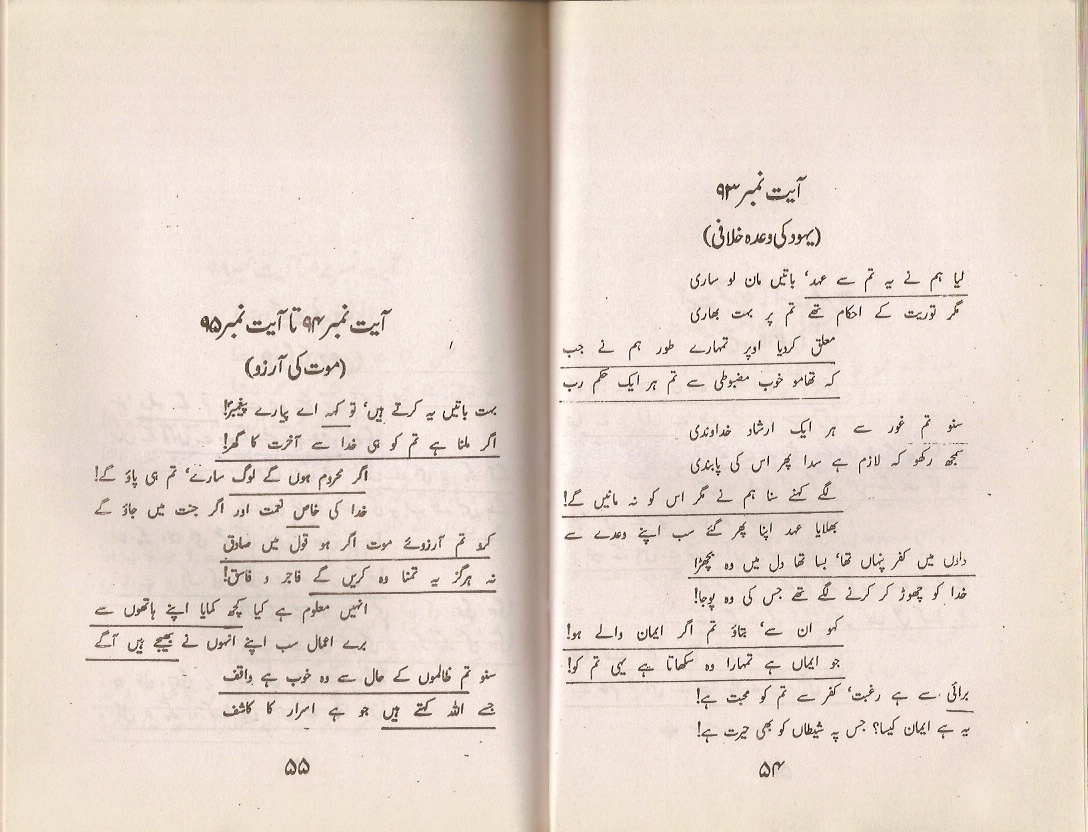 آیت نمبر ۹۳
(یہود کی وعدہ خلافی)
لیا ہم نے یہ تم سے عہد، باتیں مان لو ساری
مگر توریت کے احکام تھے تم پر بہت بھاری
معلق کردیا اوپر تمہارے طور ہم نے جب
کہ تھامو خوب مضبوطی سے تم ہر ایک حکم رب
سنو تم غور سے ہر ایک ارشاد خداوندی
سمجھ رکھو کہ لازم ہے سدا پھر اس کی پابندی
لگے کہنے سنا ہم نے مگر اس کو نہ مانیں گے!
بھلایا عہد اپنا پھر گئے سب اپنے وعدے سے
دلوں میں کفر پنہاں تھا، بسا تھا دل میں وہ بچھڑا
خدا کو چھوڑ کر کرنے لگے تھے جس کی وہ پوجا!
کہو ان سے، بتاؤ تم اگر ایمان والے ہو!
جو ایماں ہے تمہارا وہ سکھاتا ہے یہی تم کو!
برائی سے ہے رغبت، کفر سے تم کو محبت ہے!
یہ ہے ایمان کیسا؟ جس پہ شیطاں کو بھی حیرت ہے!
۵۴
آیت نمبر ۹۴ تا آیت نمبر ۹۵
(موت کی آرزو)
بہت باتیں یہ کرتے ہیں، تو کہہ اے پیارے پیغمبرؐ!
اگر ملنا ہے تم کو ہی خدا سے آخرت کا گھر!
اگر محروم ہوں گے لوگ سارے، تم ہی پاؤ گے!
خدا کی خاص نعمت اور اگر جنت میں جاؤ گے
کرو تم آرزوئے موت اگر ہو قول میں صادق
نہ ہرگز یہ تمنا وہ کریں گے فاجر و فاسق!
انہیں معلوم ہے کیا کچھ کمایا اپنے ہاتھوں سے
برے اعمال سب اپنے انہوں نے بھیجے ہیں آگے
سنو تم ظالموں کے حال سے وہ خوب ہے واقف
جسے اللہ کہتے ہیں جو ہے اسرار کا کاشف
۵۵